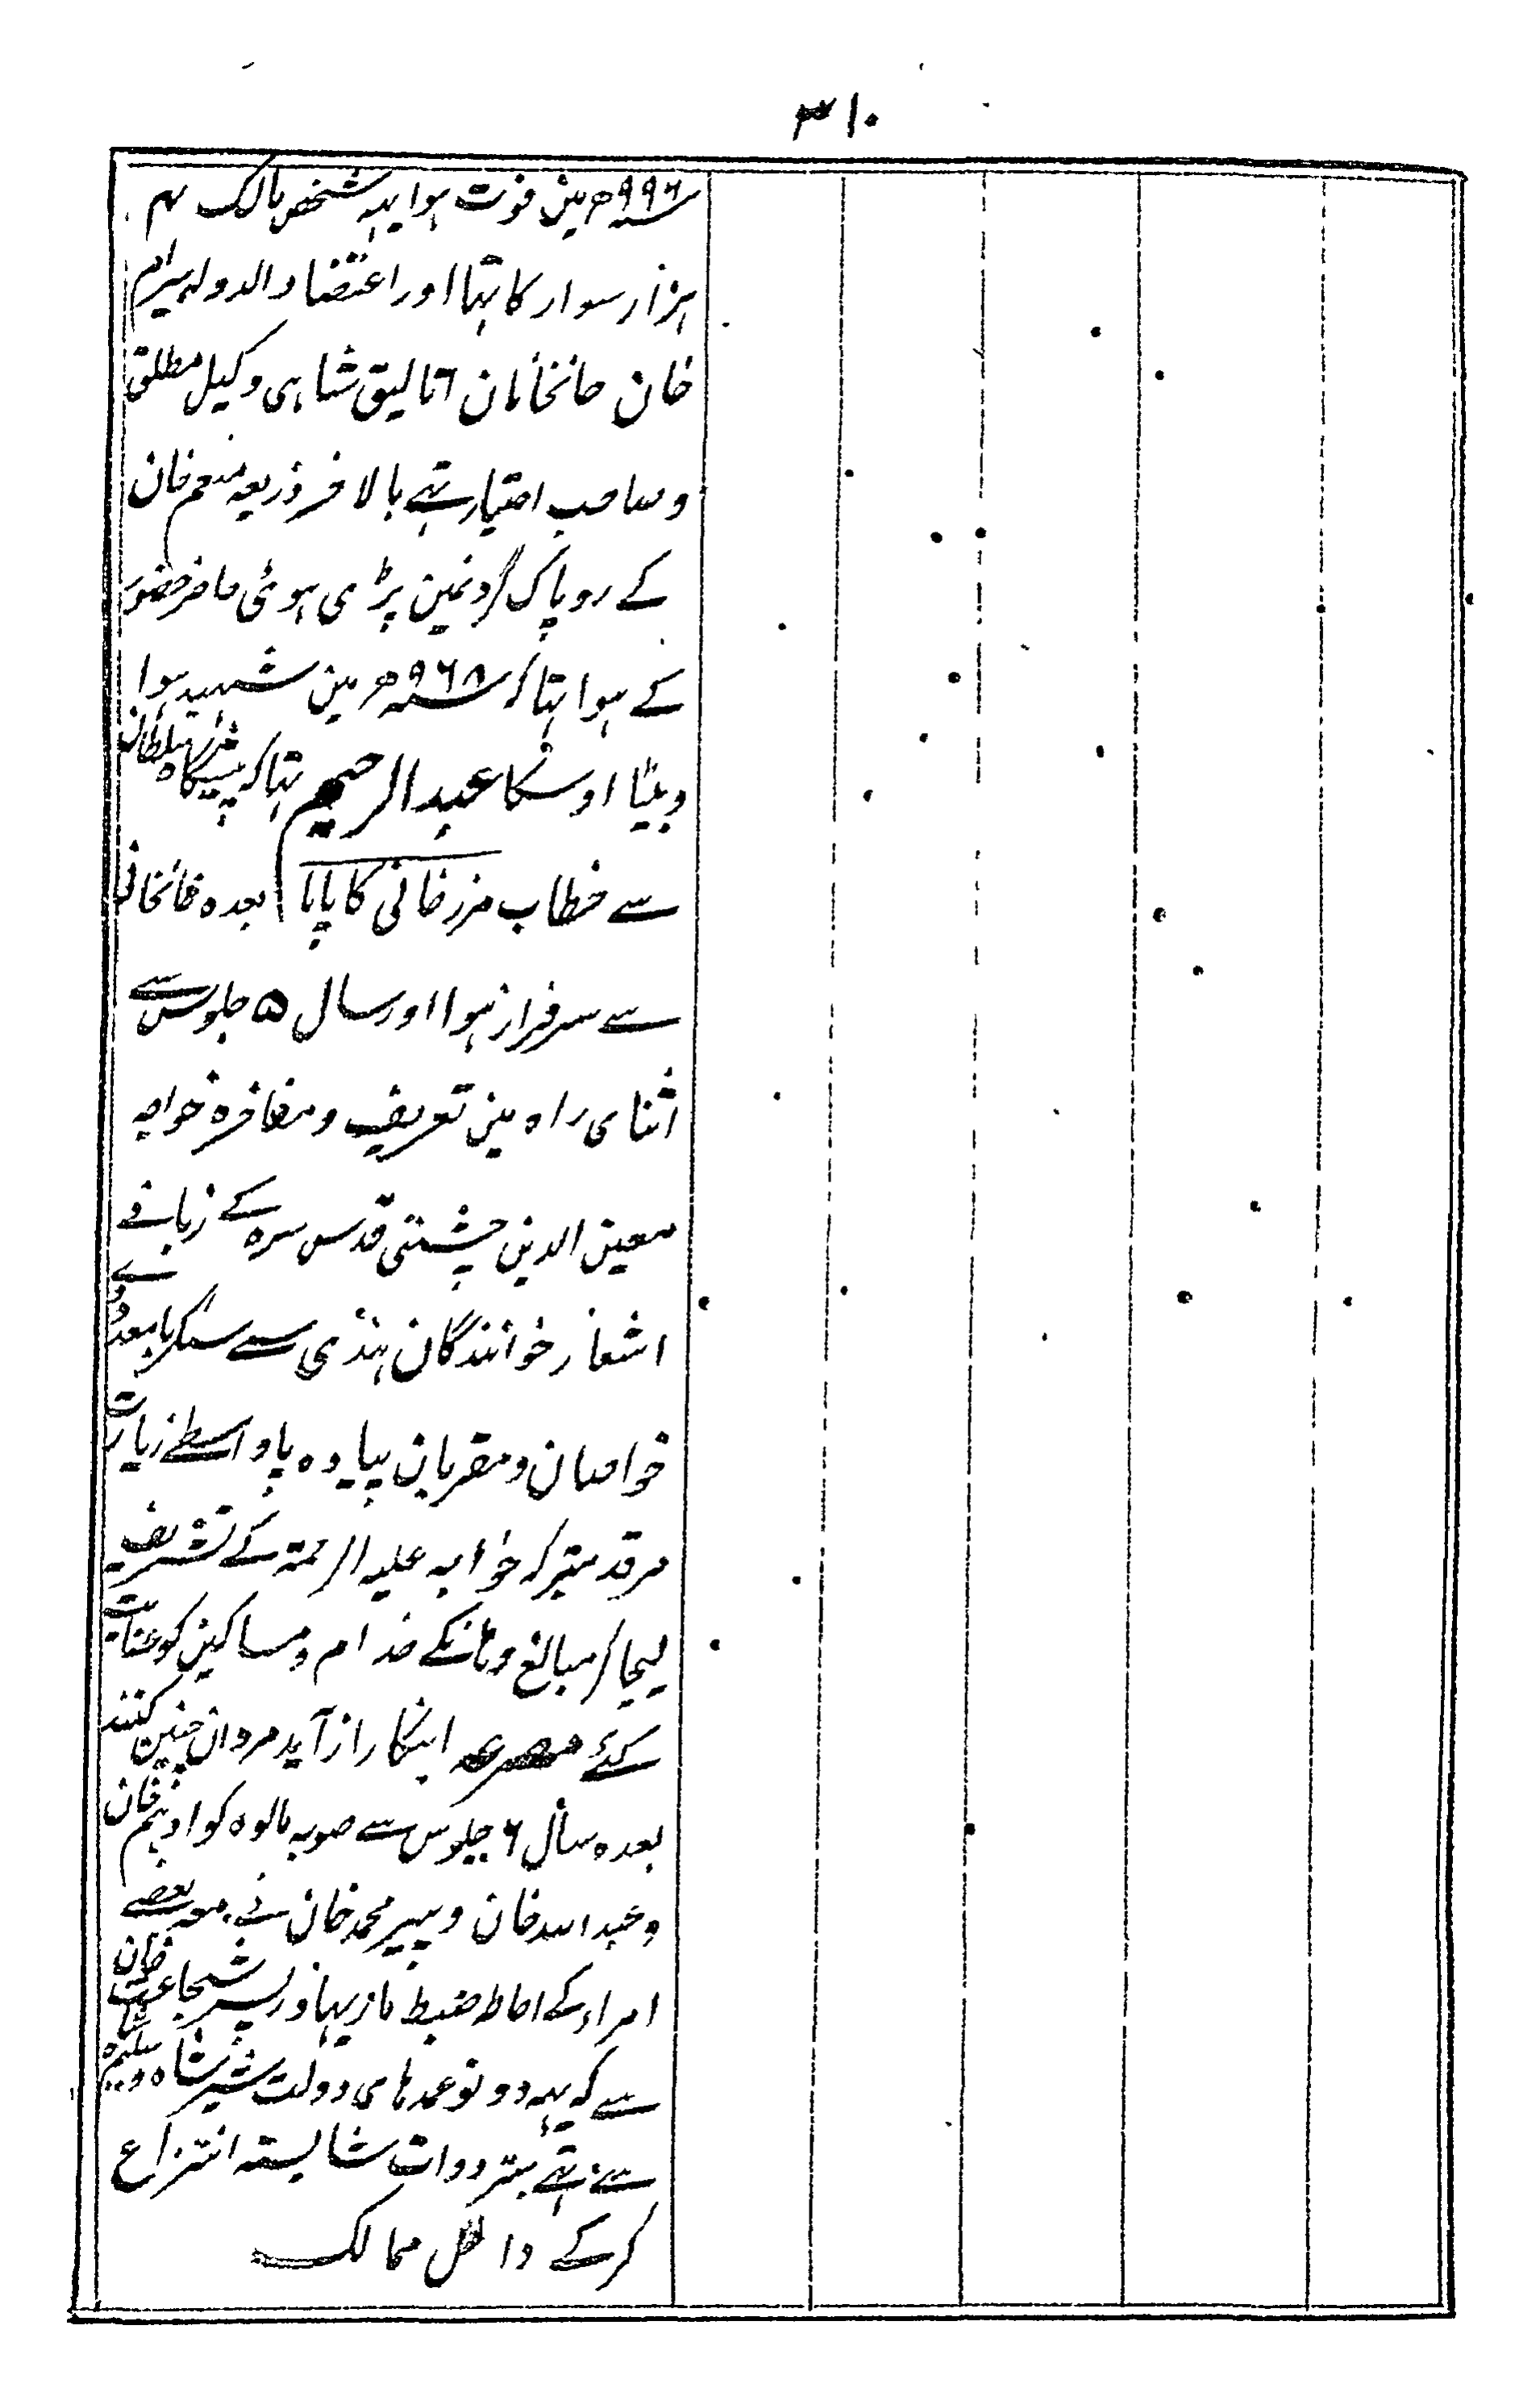 ۳۱۰
سنہ ۹۹۶ھ مین فوت ہوا یہہ شخص مالک ۴
ہزار سوار کا تہا اور اعتضاد الدولہ بیرام
خان خانخانان اتالیق شاہی وکیل مطلق
و صاحب اختیار تہے بالاخر ذریعہ منعم خان
کے روپاک گردنمین پڑی ہوئی حاضر حضور
کے ہوا تہا کہ سنہ ۹۶۸ھ مین شہید ہوا
و بیٹا اوسکا عبد الرحیم تہا کہ پیشگاہ سلطان
سے خطاب مرزخانی کا پایا بعدہ خانخانی
سے سرفراز ہوا اور سال ۵ جلوس سے
اثنای راہ مین تعریف و مفاخرہ خواجہ
معین الدین چشتی قدس سرہ کے زبانے
اشعار خوانندگان ہندی سے سنکر بامعدودے
خواصان و مقربان پیادہ پا واسطے زیارت
مرقد متبرکہ خواجہ علیہ الرحمۃ کے تشریف
لیجاکر مبالغ وہانکے خدام و مساکین کو عنایت
کئے مصرعہ اینکار از آید مردان چنین کنند
بعدہ سال ۶ جلوس سے صوبہ مالوہ کو ادہم خان
و عبد اللہ خان و پیر محمد خان نے معہ بعضے
امراء کے احاطہ ضبط بازبہادر پسر شجاعت خان
سے کہ یہہ دونو عمدہای دولت شیر شاہ و سلیم شاہ
سے تہے بتردوات شایستہ انتزاع
کر کے داخل ممالک